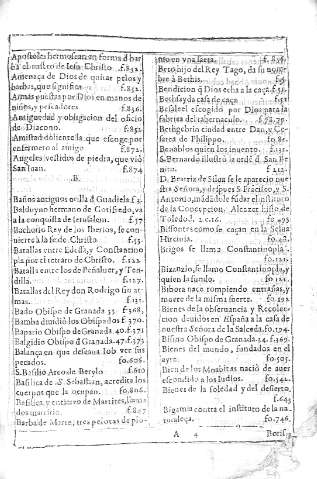 Apostoles hermosean en forma d bar
ba el rostro de Iesu Christo. f.832.
Amenaça de Dios de quitar pelos y
barba, que significa f.851.
Armas puestas por Dios en manos de
niños, y pescadores f.856.
Antiguedad y obligacion del oficio
de Diacono. f.852.
Amistad doliente la que escoge por
enfermero al amigo f.872.
Angeles vestidos de piedra, que vió
San Iuan. f.874
B.
Baños antiguos orilla d Guadiela f.4.
Balduyno hermano de Gotifredo, va
a la conquista de Ierusalen. f.57.
Bachorio Rey de los Iberios, se con
uierte à la fe de Christo. f.55.
Batallas entre Edessa, y Constantino
pla por el retrato de Christo. f.122.
Batalla entre los de Peñaluer, y Ten-
dilla. f.127.
Batallas del Rey don Rodrigo sin ar-
mas f.131.
Bado Obispo de Granada 33. f.368.
Bamba diuidiò los Obispados f.370.
Bapario Obispo de Granada 40. f.371
Balgidio Obispo d Granada 47. f.373
Balança en que deseaua Iob ver sus
pecados. fo.606.
S. Basilio Arco de Berylo f.610
Basilica de S. Sebastian, acredita los
cuerpos que la ocupan. fo.806.
Basilica y entierro de Martires, llama
dos martirio. f.807
Barba de Marte, tres pelotas de plo-
mo en vna sarta. f.838.
Beto hijo del Rey Tago, da su nom-
bre à Bethis. fo.
Bendicion q Dios echa a la caça. f.35.
Bethsayda casa de caça f.51
Beseleel escogido por Dios para la
fabrica del tabernaculo. f.78.79.
Bethgebrin ciudad entre Dan, y Ce-
sarea de Philippo. fo.80.
Beasoblos quien los inuentò. f.131.
S. Bernardo illustrò la ordẽ d. San Be-
nito f.251.
D. Beatriz de Silua se le aparecio nue
stra Señora, y despues S. Francisco, y S.
Antonio, mãdadole fũdar el instituto
de la Concepcion,
Toledo. 2. c. 16. fo.495
Bisontes como se caçan en la Selua
Hircinia. fo.48.
Brigos se llama Constantinopla.
fo.121.
Bizanzio, se llamo Constantinopla, y
quien la fundo. fo.121.
Bibora nace rompiendo entrañas, y
muere de la misma suerte. fo.192.
Bienes de la obseruancia y Recolec-
cion deuidos en España a la casa de
nuestra Señora de la Salceda. fo.194.
Bisino Obispo de Granada 34. f.369.
Bienes del mundo, fundados en el
ayre. fo.505.
Bien de los Moabitas naciò de auer
escondido a los Iudios. fo.542.
Bienes de la soledad y del desierto.
f.643
Bigamia contra el instituto de la na-
turaleça. fo.746.
A 4